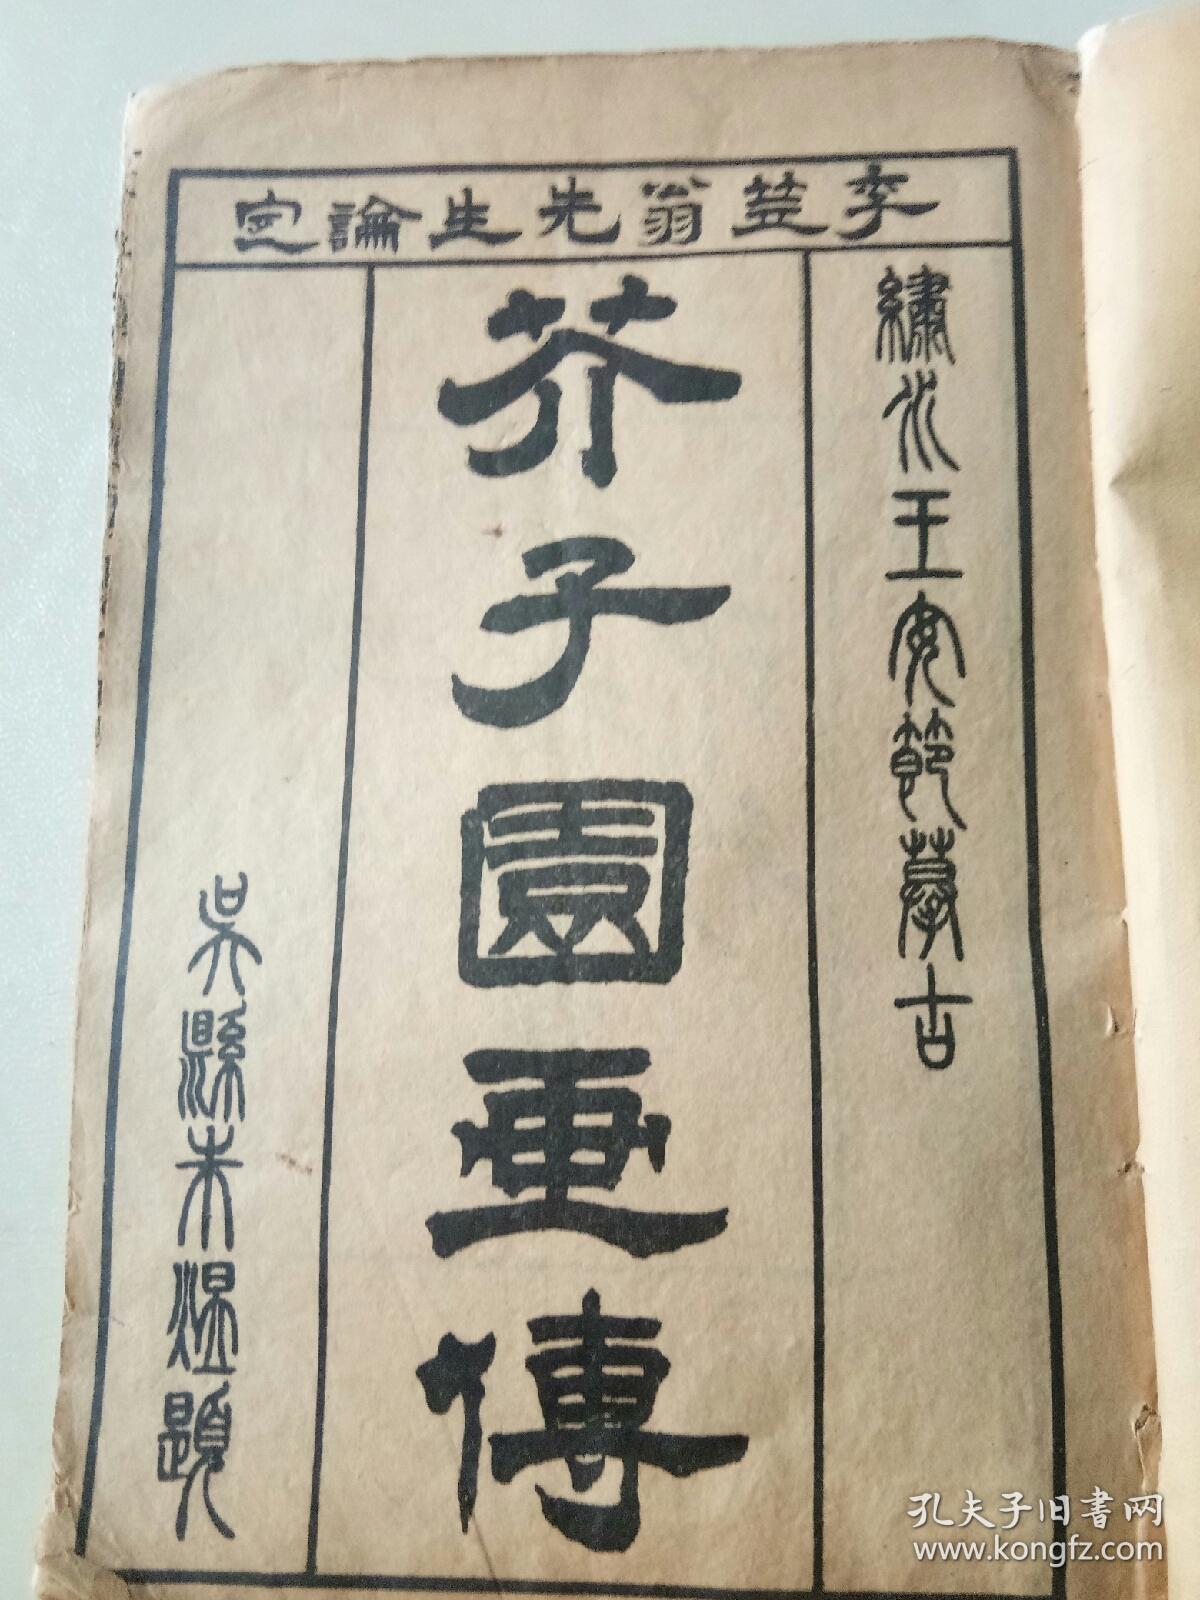 李笠翁先生論定
繡水王安節摹古
芥子園畫傳
吳縣朱煜題
孔夫子旧書网
www.kongfz.com